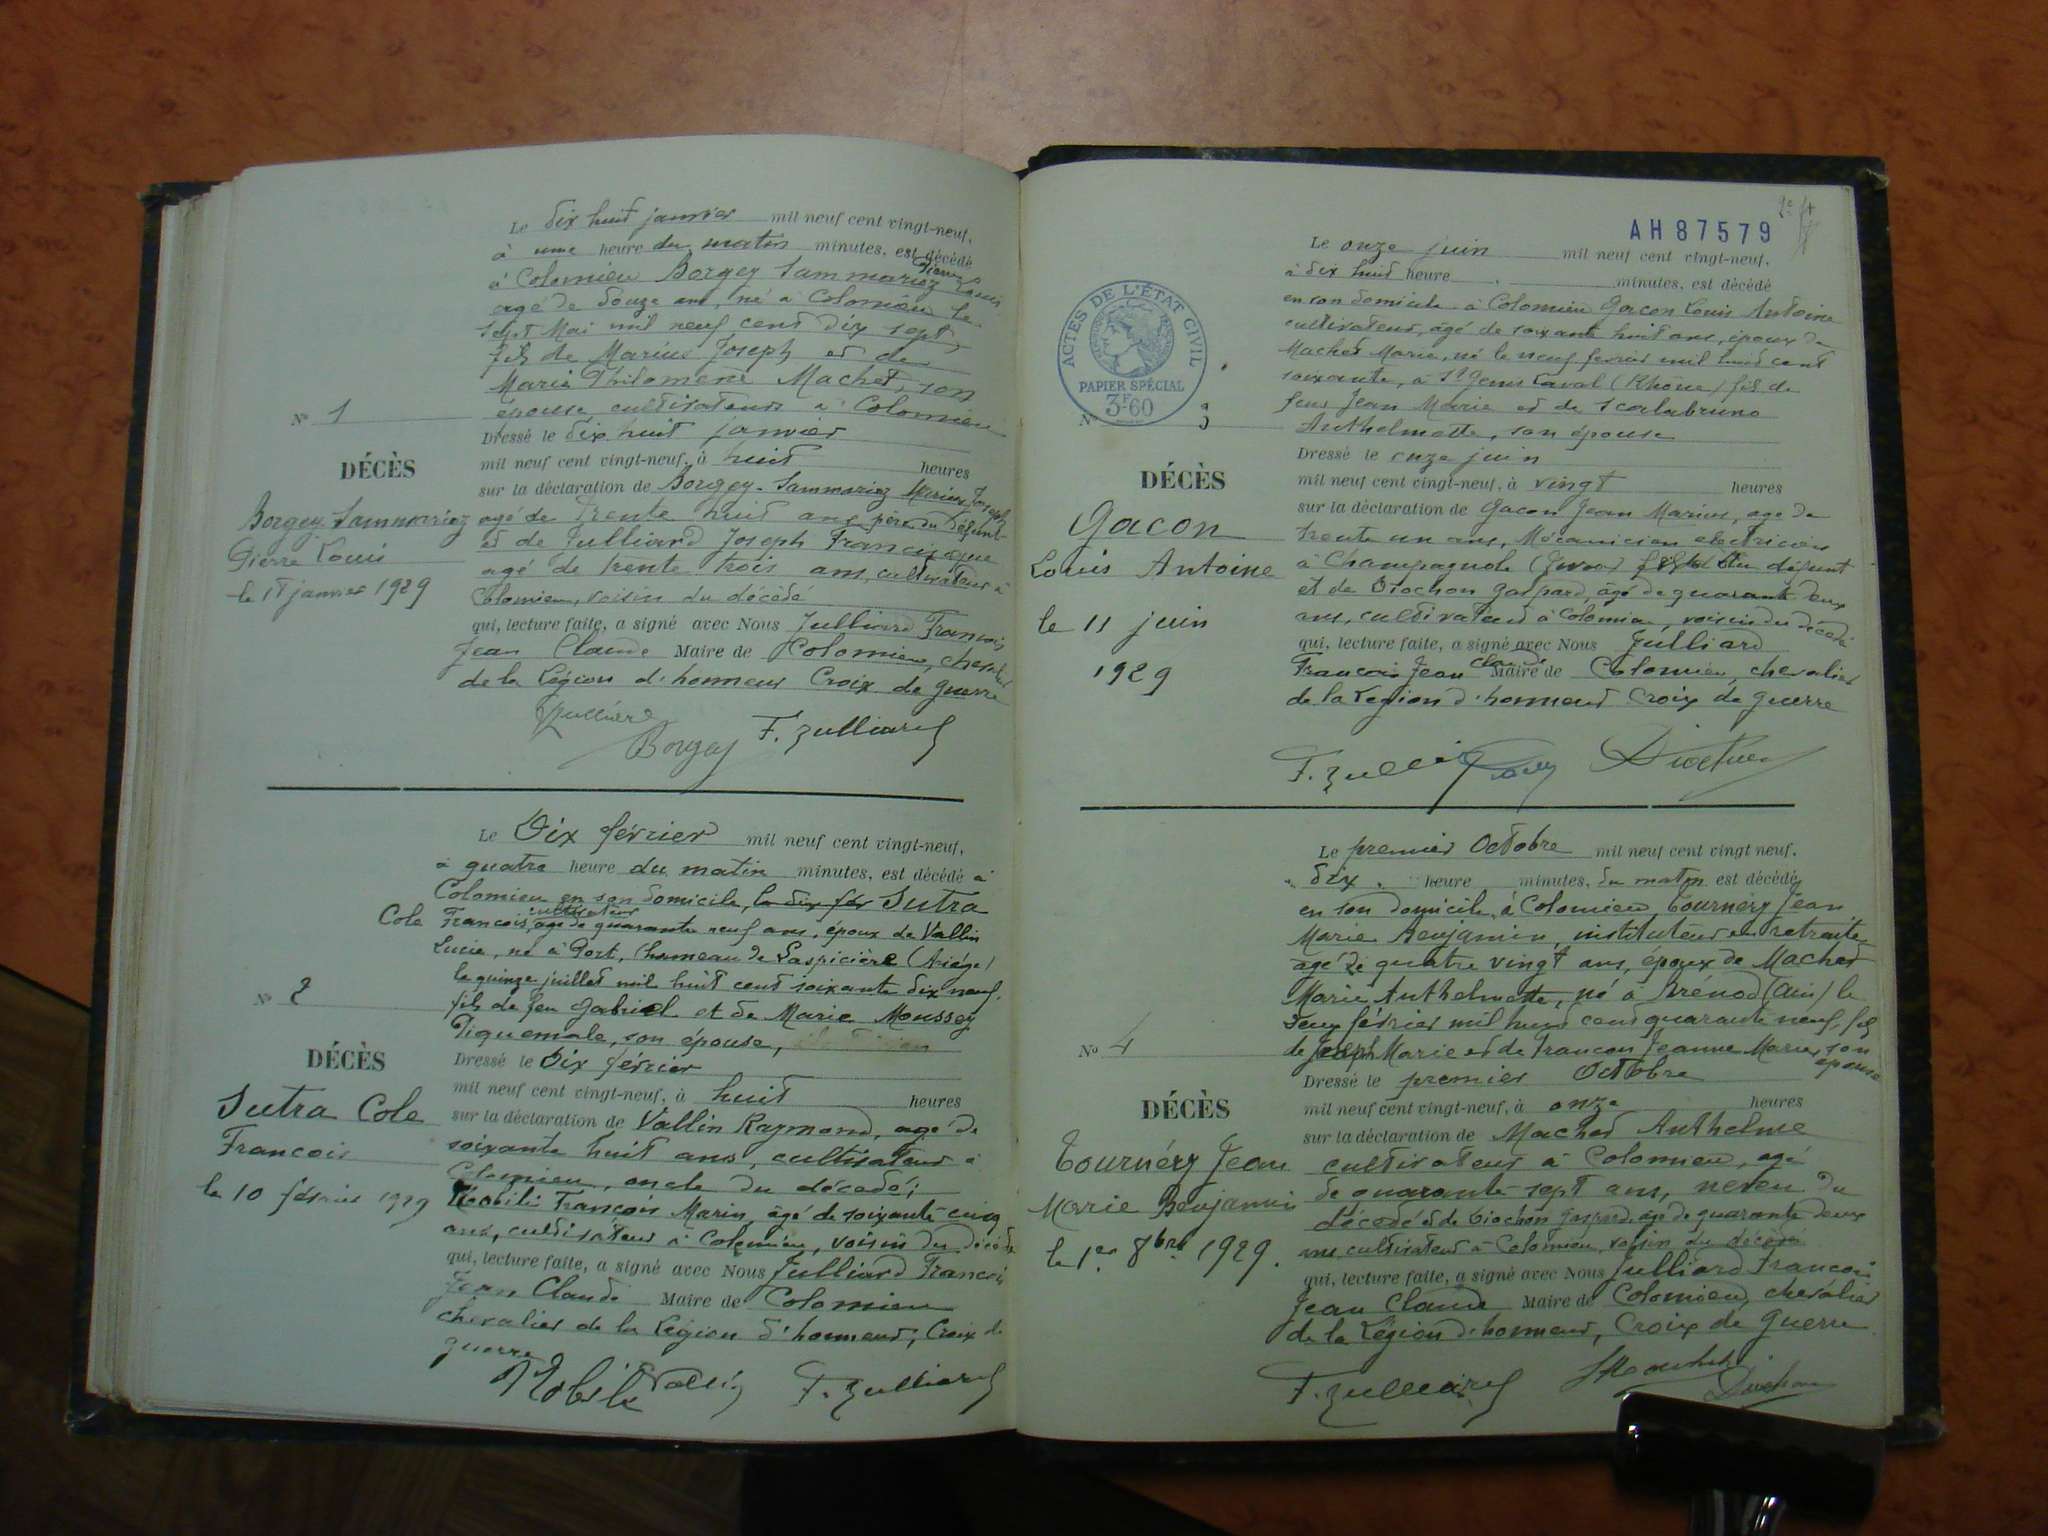 Le dix huit janvier mil neuf cent vingt-neuf,
à une heure du matin minutes, est décédé
à Colomieu Borgey Sammariez Pierre Louis
agé de douze ans, né à Colomieu le
sept Mai mil neuf cent dix sept,
fils de Marius Joseph et de
Marie Philomène Machet, son
épouse, cultivateurs à Colomieu
Nº 1
Dressé le dix huit janvier
DÉCÈS
mil neuf cent vingt-neuf, à huit heures
sur la déclaration de Borgey-Sammariez Marius Joseph
Borgey Sammariez
agé de Trente huit ans père du défunt
Pierre Louis
et de Julliard Joseph Francisque
agé de trente trois ans, cultivateur à
le 18 janvier 1929
Colomieu, voisin du décédé
qui, lecture faite, a signé avec Nous Julliard François
Jean Claude Maire de Colomieu, chevalier
de la Légion d'honneur Croix de guerre
Borgey F. Julliard
Le Dix février mil neuf cent vingt-neuf,
à quatre heure du matin minutes, est décédé à
Colomieu en son domicile, le dix fév Sutra
Cole François, cultivateur agé de quarante neuf ans, époux de Vallin
Lucie, né à Port, (hameau de Laspicière (Ariége)
le quinze juillet mil huit cent soixante dix neuf,
Nº 2
fils de feu Gabriel et de Marie Moussey
Piquemale, son épouse,
DÉCÈS
Dressé le Dix février
mil neuf cent vingt-neuf, à huit heures
Sutra Cole
sur la déclaration de Vallin Raymond, agé de
François
soixante huit ans, cultivateur à
Colomieu, oncle du décedé;
le 10 février 1929
Nobili François Marin, âgé de soixante cinq
ans, cultivateur à Colomieu, voisin du décédé
qui, lecture faite, a signé avec Nous Julliard François
Jean Claude Maire de Colomieu
chevalier de la Légion d'honneur, Croix de
guerre
Nobili Vallin F. Julliard
AH 87579
Le onze juin mil neuf cent vingt-neuf,
à dix huit heure minutes, est décédé
en son domicile à Colomieu Gacon Louis Antoine
cultivateur, agé de soixante huit ans, époux de
Machet Marie, né le neuf février mil huit cent
soixante, à St Genis Laval (Rhône) fils de
feu Jean Marie et de Scalabruno
Anthelmette, son épouse
ACTES DE L'ÉTAT CIVIL
PAPIER SPÉCIAL
3F60
Nº 3
Dressé le onze juin
DÉCÈS
mil neuf cent vingt-neuf, à vingt heures
sur la déclaration de Gacon Jean Marius, age de
Gacon
trente un ans, Mécanicien électricien
Louis Antoine
à Champagnole (Jura) fils du défunt
et de Diochon Gaspard, âgé de quarante deux
le 11 juin
ans, cultivateur à Colomieu, voisin du décédé
qui, lecture faite, a signé avec Nous Julliard
1929
François Jean Claude Maire de Colomieu, chevalier
de la Légion d'honneur Croix de guerre
F. Julliard Diochon
Le premier Octobre mil neuf cent vingt neuf,
à dix heure minutes, du matin est décédé
en son domicile à Colomieu, Tournéry Jean
Marie Benjamin, instituteur en retraite
agé de quatre vingt ans, époux de Machet
Marie Anthelmette, né à Brénod (Ain) le
deux février mil huit cent quarante neuf, fils
Nº 4
de Joseph Marie et de Francon Jeanne Marie, son épouse
Dressé le premier Octobre
DÉCÈS
mil neuf cent vingt-neuf, à onze heures
sur la déclaration de Machet Anthelme
Tournéry Jean
cultivateur à Colomieu, agé
Marie Benjamin
de quarante-sept ans, neveu du
décédé et de Diochon Gaspard, age de quarante deux
le 1er 8bre 1929.
ans cultivateur à Colomieu, voisin du décédé
qui, lecture faite, a signé avec Nous Julliard François
Jean Claude Maire de Colomieu, chevalier
de la Légion d'honneur, Croix de Guerre
F. Julliard Machet
Diochon